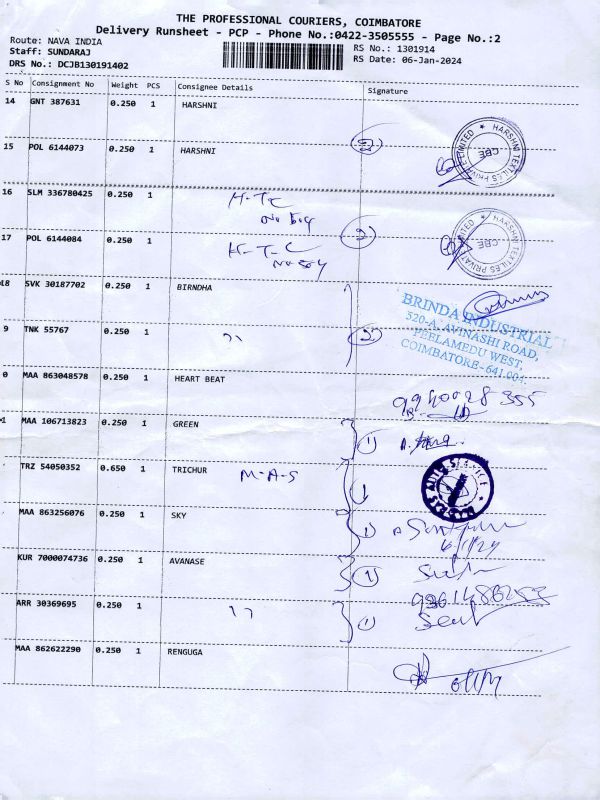 THE PROFESSIONAL COURIERS, COIMBATORE
Delivery Runsheet - PCP - Phone No.:0422-3505555 - Page No.:2
Route: NAVA INDIA
RS No.: 1301914
Staff: SUNDARAJ
RS Date: 06-Jan-2024
DRS No.: DCJB130191402
S No Consignment No Weight PCS Consignee Details Signature
14 GNT 387631 0.250 1 HARSHNI
15 POL 6144073 0.250 1 HARSHNI
HARSHNI TEXTILES PRIVATE LIMITED
CBE
16 SLM 336780425 0.250 1 H-T-C
No 504
17 POL 6144084 0.250 1 H-T-C
No 504
HARSHNI TEXTILES PRIVATE LIMITED
CBE
18 SVK 30187702 0.250 1 BIRNDHA
BRINDA INDUSTRIAL
520-A, AVINASHI ROAD,
PEELAMEDU WEST,
COIMBATORE-641 004.
9 TNK 55767 0.250 1 "
0 MAA 863048578 0.250 1 HEART BEAT
1 MAA 106713823 0.250 1 GREEN
TRZ 54050352 0.650 1 TRICHUR M-A-S
MAA 863256076 0.250 1 SKY
6/1/24
KUR 7000074736 0.250 1 AVANASE
ARR 30369695 0.250 1 "
Seal
MAA 862622290 0.250 1 RENGUGA